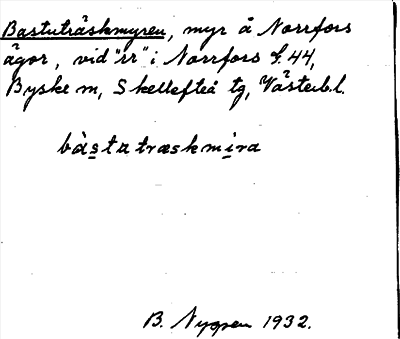 Bastuträskmyren, myr å Norrfors
ägor, vid "rr" i Norrfors f. 44,
Byske m, Skellefteå tg, Västerb.l.
bàstatræskmira
B. Nygren 1932.